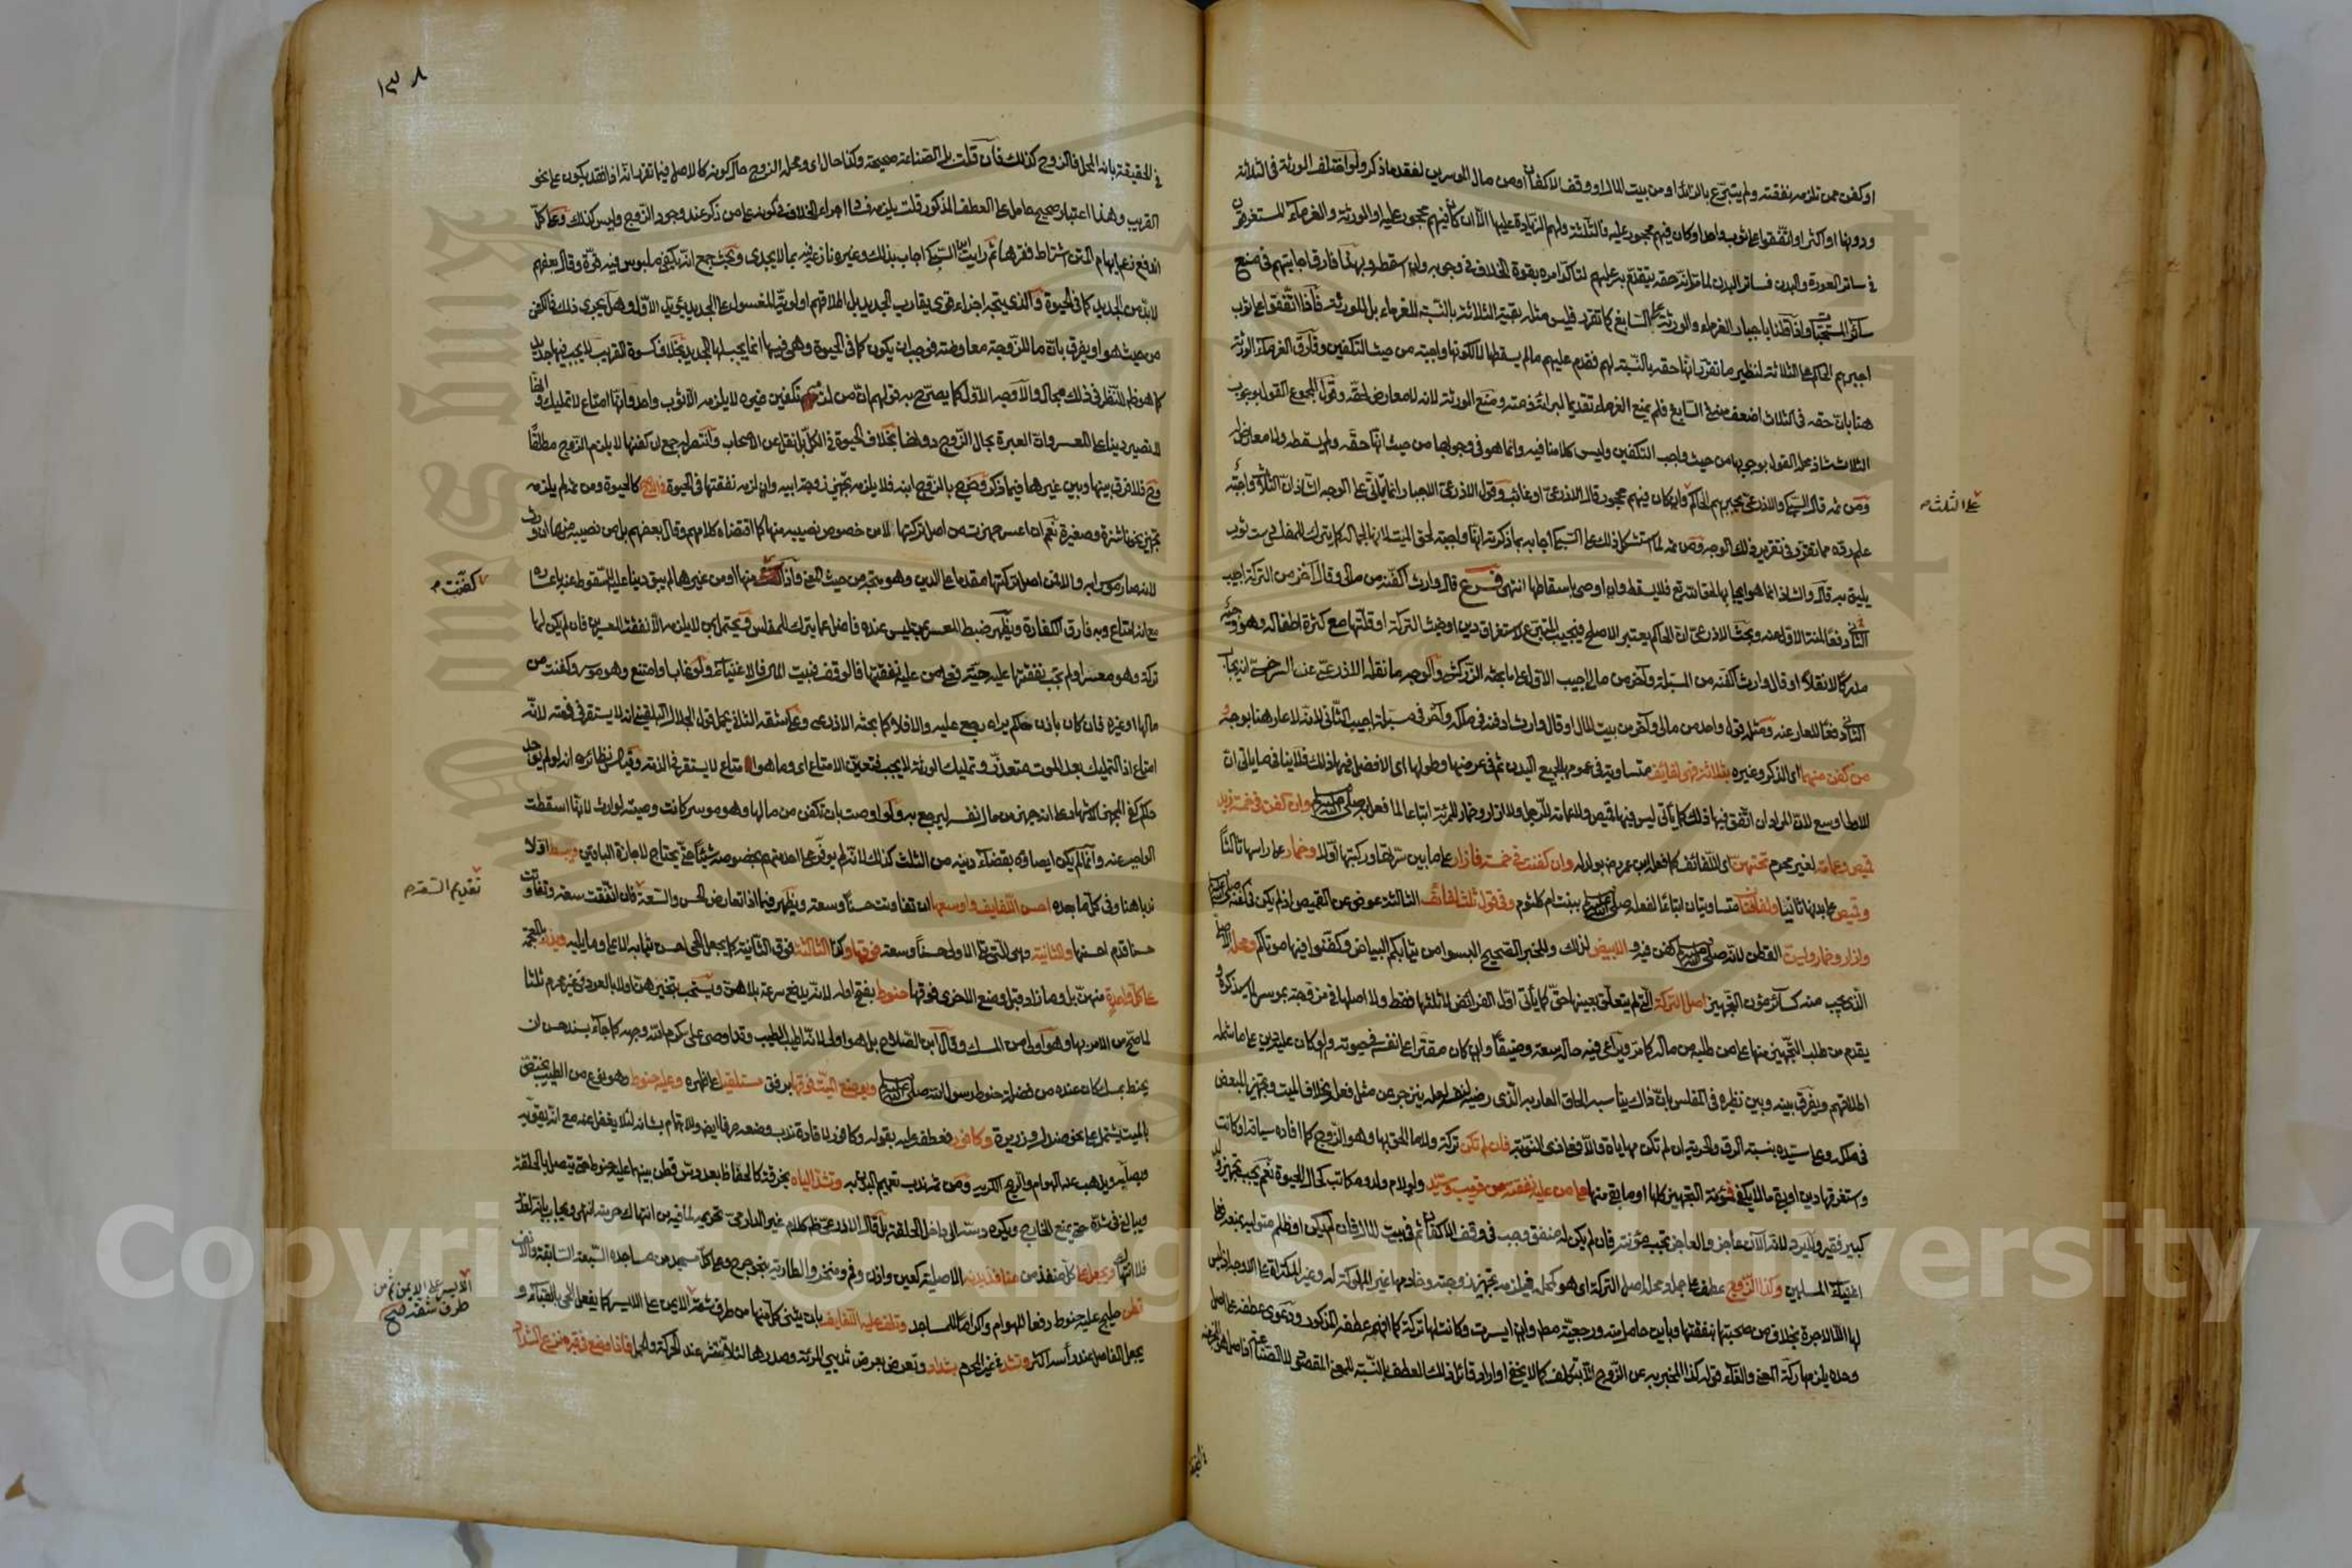 او كفن ممن تلزمه نفقته ولم يتبرع بالزائد او من بيت المال او وقف الاكفان او من مال الموسرين لفقد ما ذكر ولو اختلف الورثة في الثلاثة
ودونها او اكثر او اتفقوا على ثوب واحد او كان فيهم محجور عليه فالثلاثة ولهم الزيادة عليها الا ان كان فيهم محجور عليه او الورثة والغرماء المستغرقون
في ساتر العورة والبدن فساتر البدن لما مر انه حقه يتقدم به عليهم لتاكد امره بقوة الخلاف في وجوبه وان اسقطه وبهذا فارق اجابتهم في منع
سائر المستحبات واذا قلنا باجبار الغرماء والورثة على السابغ كما تقرر فليس مثله بقية الثلاثة بالنسبة للغرماء بل للورثة فاذا اتفقوا على ثوب
اجبرهم الحاكم على الثلاثة لنظير ما تقرر انها حقه بالنسبة لهم فقدم عليهم مالم يسقطها لا لكونها واجبة من حيث التكفين وفارق الغرماء الورثة
هنا بان حقه في الثلاث اضعف منه في السابغ فلم يمنع الغرماء تقديما لبراءة ذمته ومنع الورثة لانه لا معارض لحقه وقول المجموع القول بوجوب
الثلاث شاذ محله القول بوجوبها من حيث واجب التكفين وليس كلامنا فيه وانما هو في وجوبها من حيث انها حقه ولم يسقطه ولا معارض له
ومن ثم قال السبكي والاذرعي يجبرهم الحاكم وان كان فيهم محجور قال الاذرعي او غائب وقول الاذرعي الاجبار انما ياتي على الوجه الشاذ ان الثلاثة واجبة
على الثلث
علم رده مما تقرر في تقرير ذلك الوجه ومن ثم لما استشكل ذلك على السبكي اجابه بما ذكرته انها واجبة لحق الميت لانها جمال له كما يترك للمفلس دست ثوب
يليق به قال والشاذ انما هو ايجابها لحق الله تعالى فلا يسقط وان اوصى باسقاطها انتهى فرع قال وارث اكفنه من مالي وقال آخر من التركة اجيب
الثاني دفعا لمنة الاول عنه وبحث الاذرعي ان الحاكم يعتبر الاصلح فيجيب المتبرع لاستغراق دين او خبث التركة او قلتها مع كثرة اطفاله وهو متجه
مدركا لا نقلا او قال وارث اكفنه من المسبلة وآخر من مالي اجيب الاول على ما بحثه الزركشي والوجه ما نقله الاذرعي عن السرخسي انه يجاب
الثاني دفعا للعار عنه ومثله قول واحد من مالي وآخر من بيت المال او قال وارث ادفنه في ملكي وآخر في مسبلة اجيب الثاني لانه لا عار هنا بوجه و
من كفن منهما اي الذكر وغيره بثلاثة فهي لفائف متساوية في عمومها لجميع البدن ثم في عرضها وطولها اي الافضل فيها ذلك فلا ينافي ما ياتي ان
الاولى اوسع لان المراد ان اتفق فيها ذلك كما يأتي ليس فيها قميص ولا عمامة للرجل ولا ازار وخمار للمرئة اتباعا لما فعل به صلى الله عليه وسلم وان كفن في خمسة زيد
قميص وعمامة لغير محرم تحتهن اي اللفائف كما فعله ابن عمر رض بولد له وان كفنت في خمسة فازار على ما بين سرتها وركبتها اولا وخمار على راسها ثالثا
وقميص على بدنها ثانيا ولفافتان متساويتان اتباعا لفعله صلى الله عليه وسلم ببنته ام كلثوم وفي قول ثلاث لفائف الثالثة عوض عن القميص اذ لم يكن في كفنه صلى الله عليه وسلم
وازار وخمار وليست القطن لانه صلى الله عليه وسلم كفن فيه والابيض لذلك وللخبر الصحيح البسوا من ثيابكم البياض وكفنوا فيها موتاكم ومحله الاصلي
الذي يجب منه كسائر مؤن التجهيز اصل التركة التي لم يتعلق بعينها حق كما يأتي اول الفرائض لا ثلثها فقط ولا اصلها في مزوجة بموسر لما يذكره و
يقدم من طلب التجهيز منها على من طلبه من ماله كما مر ويراعى فيه حاله سعة وضيقا وان كان مقترا على نفسه في حيوته ولو كان عليه دين على ما شمله
اطلاقهم ويفرق بينه وبين نظيره في المفلس بان ذاك يناسبه الحاق العار به الذي رضيه لنفسه لعله ينزجر عن مثل فعله بخلاف الميت وتجهيز المبعض
في ملكه وعلى سيده بنسبة الرق والحرية ان لم تكن مهاياة والا فعلى ذي النوبة فان لم تكن تركة ولا ما الحق بها وهو الزوج كما افاده سياقه او كانت
واستغرقها دين او بقي ما لا يكفي فمؤنة التجهيز كلها او ما بقي منها على من عليه نفقته من قريب وسيد ولو لام ولد ومكاتب كحال الحيوة نعم يجب تجهيز ولد
كبير فقير ولاسترد لانه الآن عاجز والعاجز تجب مؤنته فان لم يكن له منفق وجب في وقف الاكفان ثم في بيت المال فان لم يكن او ظلم متوليه بمنعه فعلى
اغنياء المسلمين وكذا الزوج عطف على جملة ومحله اصل التركة اي هو كمحله فيلزمه تجهيز زوجته وخادمها غير المملوكة له وغير المكتراة على الاوجه اذ ليس
لها الا الاجرة بخلاف من صحبتها بنفقتها وباين حامل منه ورجعية مطلقا وان ايسرت وكانت لها تركة كما افهمه عطفه المذكور ودعوى عطفه على اصل
وحده يلزمها ركة المعنى والغاء قوله كذا المخبر به عن الزوج الا بتكلف كما لا يخفى او اراد قائل ذلك العطف بالنسبة للمعنى المقصود لا للصناعة اذ حاصله
١٣٨
في الحقيقة بانه المحل فالزوج كذلك فان قلت بل الصناعة صحيحة وكذا حال اي ومحله الزوج حال كونه كالاصل فيما تقرر انه اذا فقد يكون على نحو
القريب وهذا اعتبار صحيح حامل على العطف المذكور قلت يلزمه فساد اجراء الخلاف في كونه على من ذكر عند وجود الزوج وليس كذلك وعلى كل
اندفع زعم ايهام المتن اشتراط فقرهما ثم رايت السبكي اجاب بذلك وغيره نازع فيه بما لا يجدى وبحث جمع انه يكفي ملبوس فيه قوة وقال بعضهم
لا بد من الجديد كما في الحيوة والذي يتجه اجزاء قوي يقارب الجديد بل اطلاقهم اولوية المغسول على الجديد يؤيد الاول وهل يجزى ذلك في الكفن
من حيث هو او يفرق بان ما للزوجة معاوضة فوجب ان يكون كما في الحيوة وهي فيها انما يجب لها الجديد بخلاف كسوة القريب لا يجب فيها جديد
كما هو ظ للنظر في ذلك مجال والاوجه الاول كما يصرح به قولهم ان من لزمه تكفين غيره لا يلزمه الا ثوب واحد وانها امتاع لا تمليك وانها
لا تصير دينا على المعسر وان العبرة بحال الزوج دونها بخلاف الحيوة في الكل بل نقل عن الاصحاب وانتصر له جمع ان كفنها لا يلزم الزوج مطلقا
ومح فلا فرق بينها وبين غيرها فيما ذكر وخرج بالزوج ابنه فلا يلزمه تجهيز زوجة ابيه وان لزمه نفقتها في الحيوة في الاصح كالحيوة ومن ثم لم يلزمه
تجهيز نحو ناشزة وصغيرة نعم ان اعسر جهزت من اصل تركتها لا من خصوص نصيبه منها كما اقتضاه كلامهم وقال بعضهم بل من نصيبه منها ان ورث
لانه صار موسرا به والا فمن اصل تركتها مقدما على الدين وهو متجه من حيث المعنى واذا كفنت منها او من غيرها لم يبق دينا عليه لسقوطه عنه باعساره
كفنت
مع انه امتاع وبه فارق الكفارة ويظهر ضبط المعسر بمن ليس عنده فاضل عما يترك للمفلس ويحتمل بمن لا يلزمه الا نفقة المعسرين فان لم يكن لها
تركة وهو معسر ولم تجب نفقتها عليه حية فعلى من عليه نفقتها فالوقف فبيت المال فالاغنياء ولو غاب او امتنع وهو موسر وكفنت من
مالها او غيره فان كان باذن حاكم يراه رجع عليه والا فلا كما بحثه الاذرعي وعلى شقه الثاني يحمل قول الجلال البلقيني انه لا يستقر في ذمته لانه
امتاع اذ التمليك بعد الموت متعذر وتمليك الورثة لا يجب فتعين الامتاع اي وما هو امتاع لا يستقر في الذمة وقياس نظائره انه لو لم يوجد
حاكم كفى المجهز الاشهاد على انه جهز من مال نفسه ليرجع به ولو اوصت بان تكفن من مالها وهو موسر كانت وصية لوارث لانها اسقطت
الواجب عنه وانما لم يكن ايصاؤه بقضاء دينه من الثلث كذلك لانه لم يوفر على احد منهم بخصوصه شيئا حتى يحتاج لاجازة الباقين وبسط اولا
ندبا هنا وفي كل ما بعده احسن اللفايف واوسعها ان تفاوتت حسنا وسعة ويظهر فيما اذا تعارض الحسن والسعة فان اتفقت سعة وتفاوتت
تقديم السعة
حسنا قدم احسنها والثانية وهي التي تلي الاولى حسنا وسعة فوقها وكذا الثالثة فوق الثانية كما يجعل الحي احسن ثيابه الاعلى وما يليه ويذر بالمعجمة
على كل واحدة منهن بل وما زاد وقبل وضع الاخرى فوقها حنوط بفتح اوله لانه يدفع سرعة بلاهن ويستحب تبخيرهن اولا بالعود في غير محرم ثلثا
لما صح من الامر بها وهو اولى من المسك وقال ابن الصلاح بل هو اولى لانه اطيب الطيب وقد اوصى علي كرم الله وجهه كما جاء بسند حسن ان
يحنط بمسك كان عنده من فضل حنوط رسول الله صلى الله عليه وسلم ويوضع الميت فوقها برفق مستلقيا على ظهره وعليه حنوط وهو نوع من الطيب يختص
بالميت يشتمل على نحو صندل وذريرة وكافور فعطفه عليه بقوله وكافور لافادة ندب وضعه صرفا ايضا وللاهتمام بشانه لئلا يغفل عنه مع انه يقويه
ويصلبه ويذهب عنه الهوام والريح الكريه ومن ثم ندب تعميم البدن به وتشد الياه بخرقة كالحفاظ بعد دس قطن بينها عليه حنوط حتى يتصل بالحلقة
ويبالغ في شده حتى يمنع الخارج ويكره دسه الى داخل الحلقة بل قال الاذرعي ظاهر كلام غير الدارمي تحريمه لما فيه من انتهاك حرمته انتهى ويجاب بانه لعذر
فلا انتهاك ويجعل على كل منفذ من منافذ بدنه الاصلية كعين واذن وفم ومنخر والطارية بنحو جرح وعلى كل مسجد من مساجده السبعة السابقة والانف
قطن حليج عليه حنوط دفعا للهوام واكراما للمساجد وتلف عليه اللفايف بان يثنى كل منها من طرف شقه الايمن على الايسر كما يفعل الحي بالقباء و
الايسر على الايمن ثم من
طرف شقه صح
يجعل الفاضل عند رأسه اكثر وتشد في غير المحرم بشداد وتعرض بعرض ثديي المرئة وصدرها لئلا ينتشر عند الحركة والحمل فاذا وضع في قبره نزع الشداد
Copyright © King Saud University
King Saud University